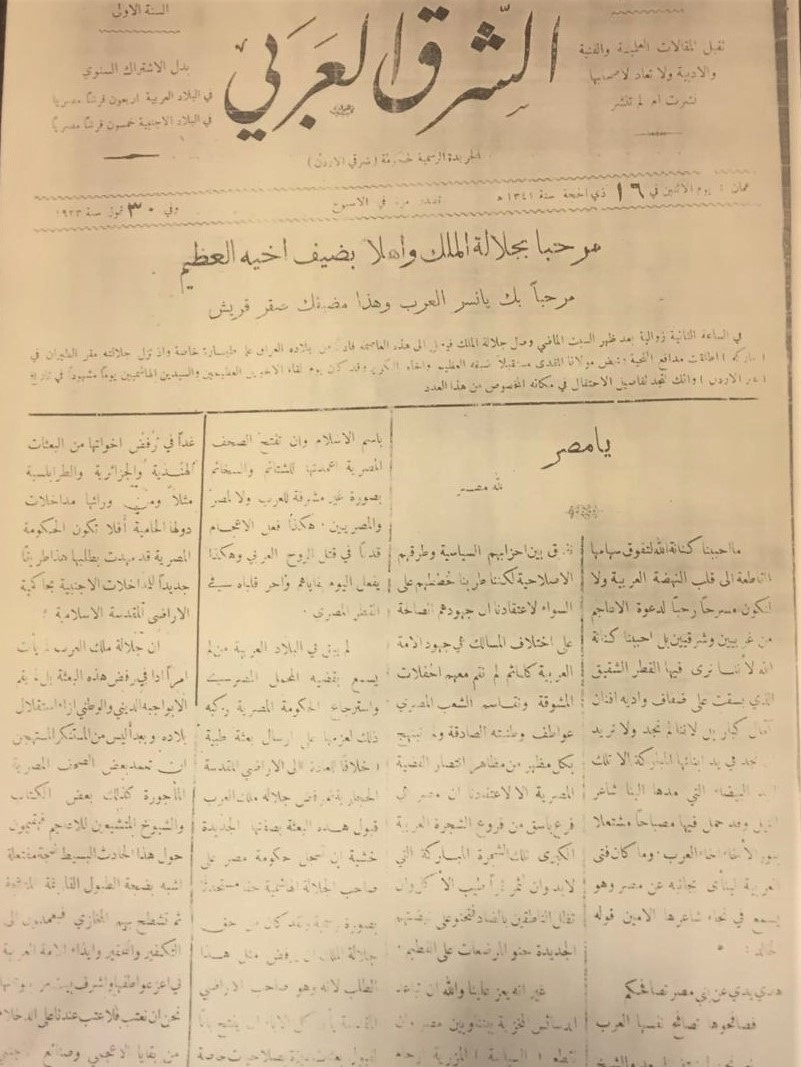 السنة الاولى
بدل الاشتراك السنوي
في البلاد العربية اربعون قرشا مصريا
في البلاد الاجنبية خمسون قرشا مصريا
الشرق العربي
تقبل المقالات العلمية والفنية
والادبية ولا تعاد لاصحابها
نشرت ام لم تنشر
الجريدة الرسمية لحكومة (شرقي الاردن)
عمان : يوم الاثنين في ١٦ ذي الحجة سنة ١٣٤١ ه
تصدر مرة في الاسبوع
وفي ٣٠ تموز سنة ١٩٢٣
مرحبا بجلالة الملك واهلا بضيف اخيه العظيم
مرحباً بك يانسر العرب وهذا مضيفك صقر قريش
في الساعة الثانية زوالية بعد ظهر السبت الماضي وصل جلالة الملك فيصل الى هذه العاصمة من بلاده العراق على طيارة خاصة واذ نزل جلالته مقر الطيران في
اطلقت مدافع التحية مولانا المفدى مستقبلاً ضيفه العظيم واخاه الكريم وقد كان يوم لقاء الاخوين العظيمين والسيدين الهاشميين يوماً مشهوداً في تاريخ
الاردن وانك تجد تفاصيل الاحتفال في مكانه المخصوص من هذا العدد
يامصر
لله مصر
ما احببنا كنانة الله لتفوق سهامها
القاطعة الى قلب النهضة العربية ولا
لتكون مسرحاً رحباً لدعوة الاعاجم
من غربيين وشرقيين بل احببنا كنانة
الله لأننا نرى فيها القطر الشقيق
الذي بسقت على ضفاف واديه افنان
آمال كبار بل لاننا لم نجد ولا نريد
نجد في يد ابنائها المباركة الا تلك
اليد البيضاء التي مدها الينا شاعر
النيل وقد حمل فيها مصباحاً مشتعلا
بنور الأخاء اخاء العرب وما كان فتى
العربية لينأى بجانبه عن مصر وهو
يسمع في نجاء شاعرها الامين قوله
الخالد :
هذي يدي عن بني مصر تصافحكم
فصافحوها تصافح نفسها العرب
نفرق بين احزابهم السياسية وطرقهم
الاصلاحية لكننا طربنا لخططهم على
السواء لاعتقادنا ان جهودهم الصالحة
على اختلاف المسالك هي جهود الامة
العربية كلها ثم لم نقم معهم الحفلات
المشوقة ونقاسم الشعب المصري
عواطف وطنيته الصادقة ولم نبتهج
بكل مظهر من مظاهر انتصار القضية
المصرية الا لاعتقادنا ان مصر
فرع باسق من فروع الشجرة العربية
الكبرى تلك الشجرة المباركة التي
لابد وان تثمر ثمراً طيب الأكل وان
تفال الناطقين بالضاد فتحنو على نهضتهم
الجديدة حنو المرضعات على الفطيم
غير انه يعز علينا والله ان تباعد
الدسائس المخزية بيننا وبين مصر وان
باسم الاسلام وان تفتح الصحف
المصرية اعمدتها للشتائم والسخائم
بصورة غير مشرفة للعرب ولا لمصر
والمصريين . هكذا فعل الاعجام
قدماً في قتل الروح العربي وهكذا
يفعل اليوم بقاياهم وآخر فلهم في
القطر المصري .
لم يبق في البلاد العربية من لم
يسمع بقضية المحمل المصري
واسترجاع الحكومة المصرية ركبه
ذلك لعزمها على ارسال بعثة طبية
( خلافا للعادة ) الى الاراضي المقدسة
الحجازية ثم رفض جلالة ملك العرب
قبول هذه البعثة بصفتها الجديدة
خشية ان تسجل حكومة مصر على
صاحب الجلالة الهاشمية حقا مستحدثا
بصورة رسمية وقد كان من حق
جلالة الملك ان يرفض مثل هذا
الطلب لانه وهو صاحب الاراضي
غداً في ترفض اخواتها من البعثات
الهندية والجزائرية والطرابلسية
مثلا ومن ورائها مداخلات
دولها الحامية أفلا تكون الحكومة
المصرية قد مهدت بطلبها هذا طريقاً
جديداً للمداخلات الاجنبية بحاكمية
الاراضي المقدسة الاسلامية ؟
ان جلالة ملك العرب لم يأت
امراً ادا في رفض هذه البعثة بل لم يقم
الا بواجبه الديني والوطني ازاء استقلال
بلاده وبعد أليس من المستنكر المستهجن
ان تعمد بعض الصحف المصرية
المأجورة كذلك بعض الكتاب
والشيوخ المتشيعون للاعاجم فيجتمعون
حول هذا الحادث البسيط ضجة مفتعلة
اشبه بضجة الطبول الفارغة
ثم تشطح بهم المخازي فيعمدون الى
التكفير والتحقير وايذاء الامة العربية
في اعز عواطفها واشرف
نحن ان نعتب فلا عتب عندنا على الدخلاء
من بقايا الاعجمي وصنائع